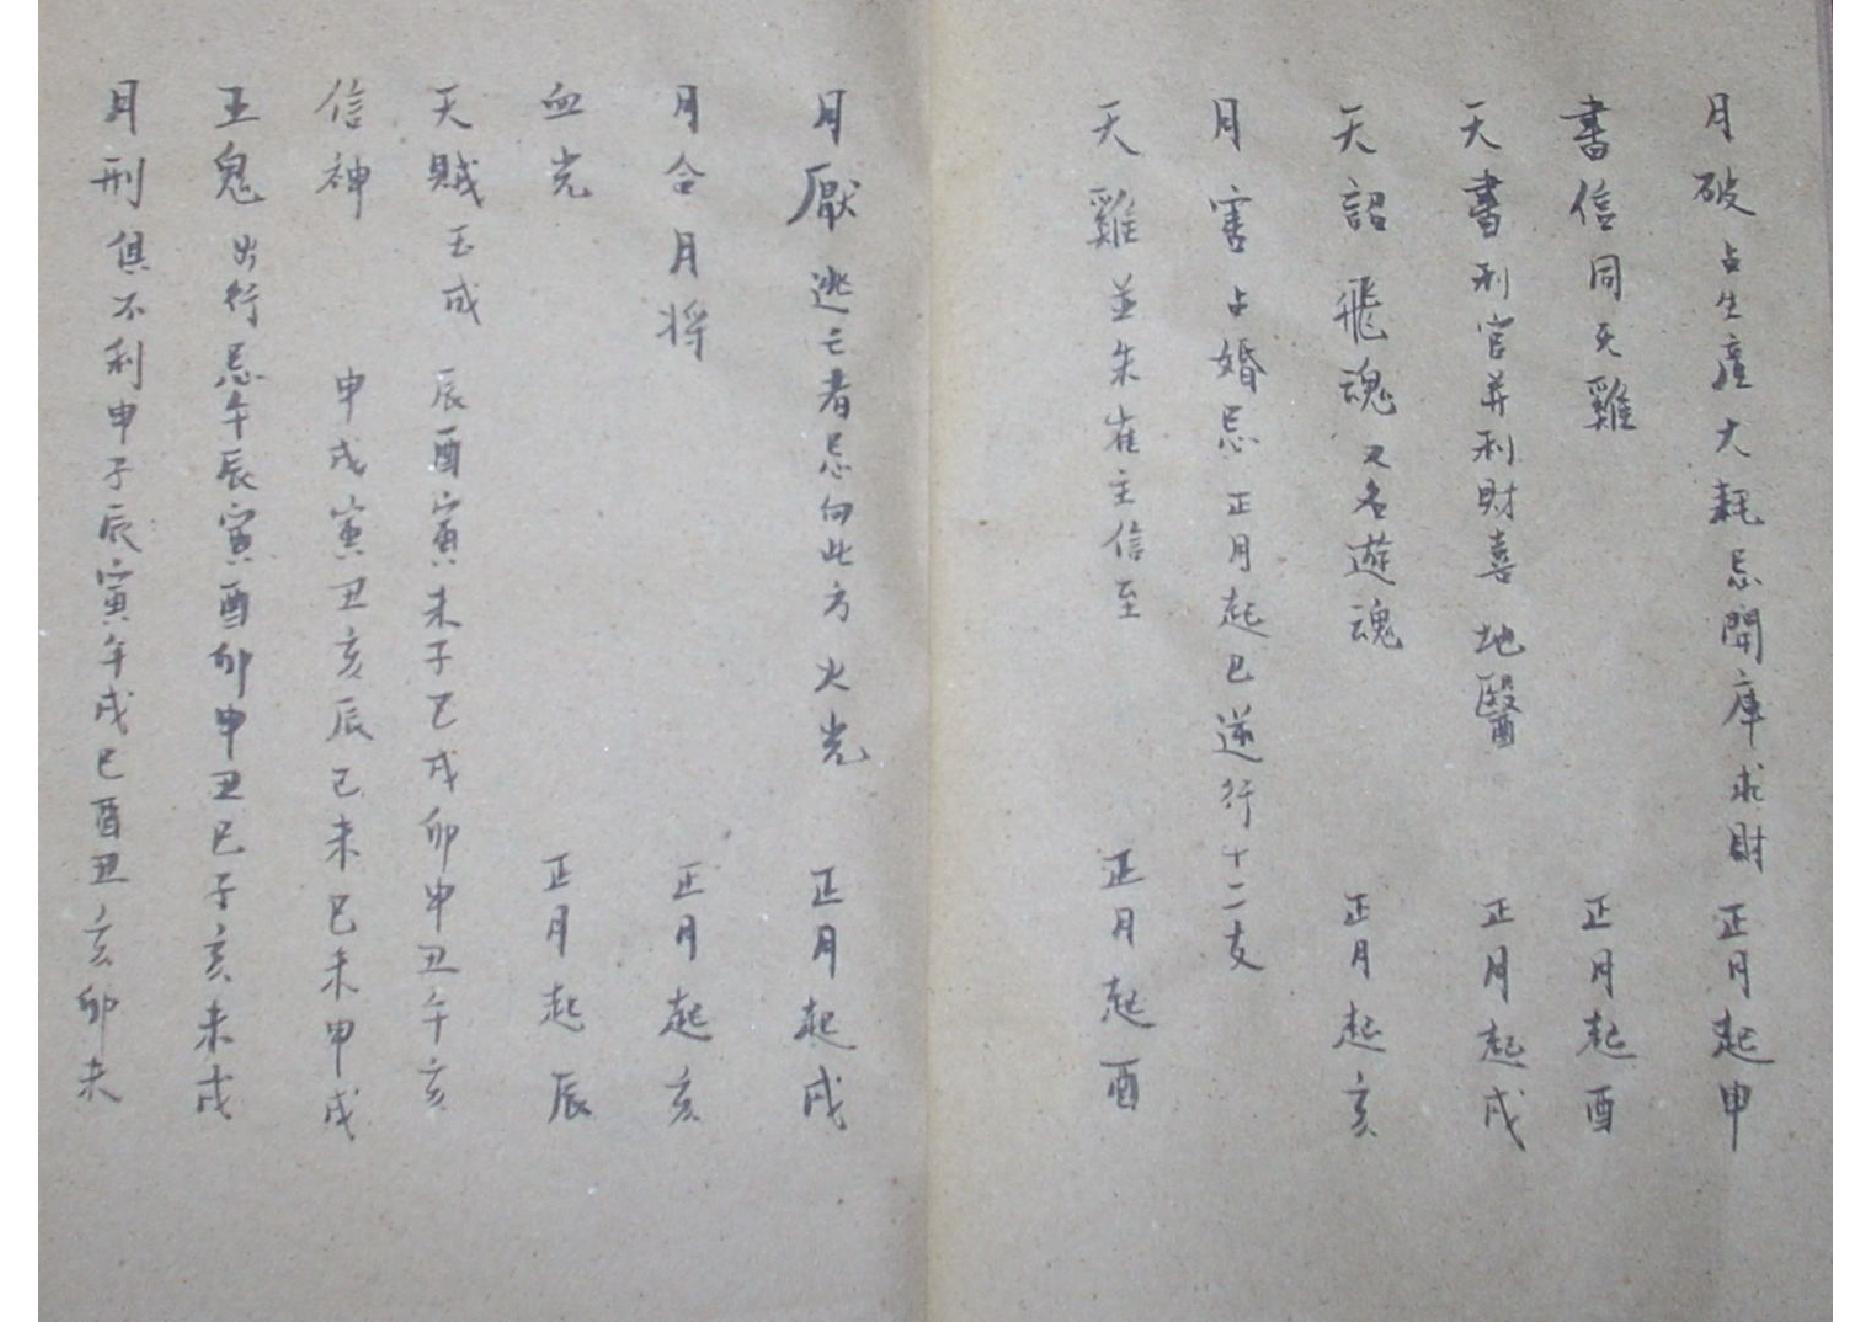 月破占生產大耗忌開庫求財 正月起申
書信同天雞 正月起酉
天書利官并利財喜 地醫 正月起戌
天詔飛魂又名遊魂 正月起亥
月害占婚忌 正月起巳逆行十二支
天雞並朱雀主信至 正月起酉
月厭逃亡者忌向此方火光 正月起戌
月合月將 正月起亥
血光 正月起辰
天賊 辰酉寅未子巳戌卯申丑午亥
信神 申戌寅丑亥辰巳未巳未申戌
王鬼出行忌午辰寅酉卯申丑巳子亥未戌
月刑俱不利申子辰寅午戌巳酉丑亥卯未